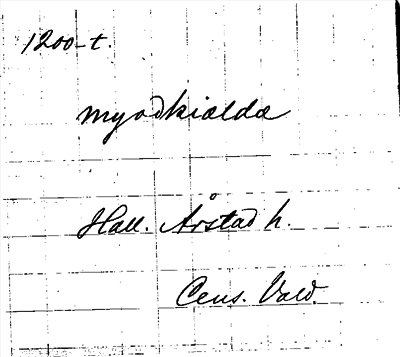 1200-t.
myodkialda
Hall. Årstad h.
Cens. Vald.